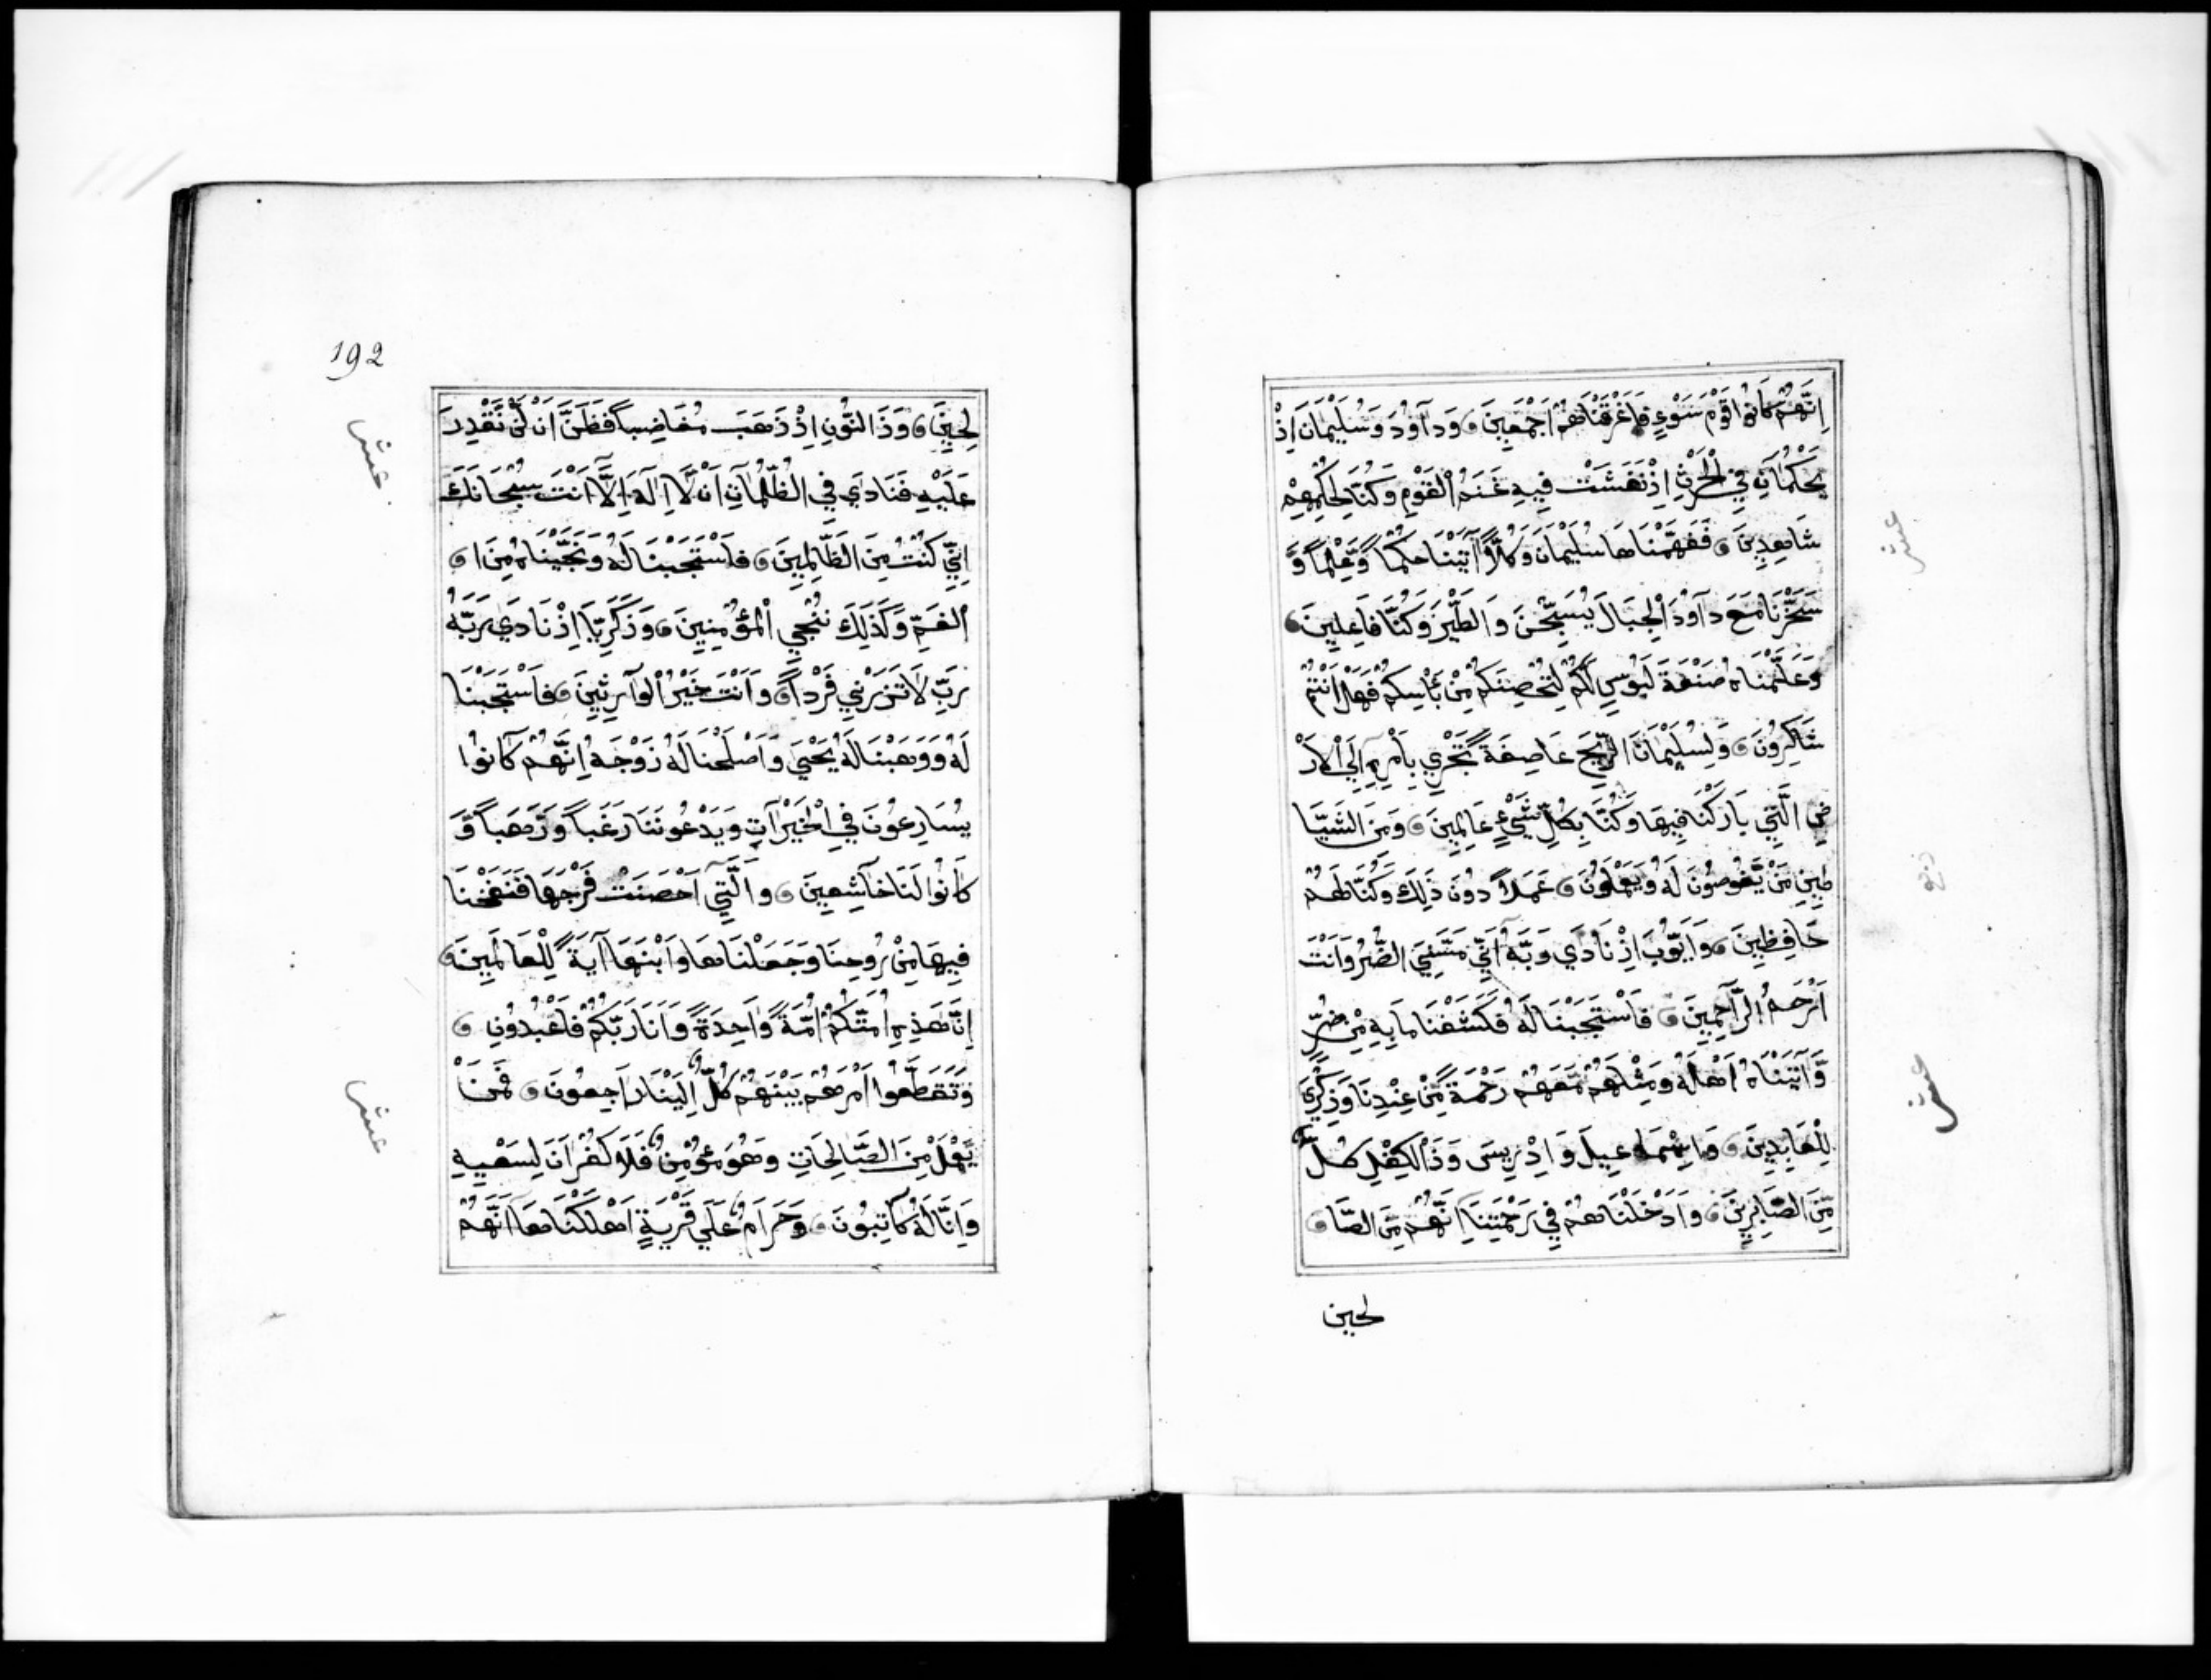 اِنَّهُمْ كَانُوا قَوْمَ سَوْءٍ فَاَغْرَقْنَاهُمْ اَجْمَعِينَ وَدَاوُدَ وَسُلَيْمَانَ اِذْ
يَحْكُمَانِ فِي الْحَرْثِ اِذْ نَفَشَتْ فِيهِ غَنَمُ الْقَوْمِ وَكُنَّا لِحُكْمِهِمْ
شَاهِدِينَ فَفَهَّمْنَاهَا سُلَيْمَانَ وَكُلًّا آتَيْنَا حُكْمًا وَّعِلْمًا وَّ
سَخَّرْنَا مَعَ دَاوُدَ الْجِبَالَ يُسَبِّحْنَ وَالطَّيْرَ وَكُنَّا فَاعِلِينَ
وَعَلَّمْنَاهُ صَنْعَةَ لَبُوسٍ لَكُمْ لِتُحْصِنَكُمْ مِنْ بَأْسِكُمْ فَهَلْ اَنْتُمْ
شَاكِرُونَ وَلِسُلَيْمَانَ الرِّيحَ عَاصِفَةً تَجْرِي بِاَمْرِهِ اِلَي الْاَرْ
ضِ الَّتِي بَارَكْنَا فِيهَا وَكُنَّا بِكُلِّ شَيْءٍ عَالِمِينَ وَمِنَ الشَّيَا
طِينِ مَنْ يَّغُوصُونَ لَهُ وَيَعْمَلُونَ عَمَلًا دُونَ ذَلِكَ وَكُنَّا لَهُمْ
حَافِظِينَ وَاَيُّوبَ اِذْ نَادَي رَبَّهُ اَنِّي مَسَّنِيَ الضُّرُّ وَاَنْتَ
اَرْحَمُ الرَّاحِمِينَ فَاسْتَجَبْنَا لَهُ فَكَشَفْنَا مَا بِهِ مِنْ ضُرٍّ
وَّآتَيْنَاهُ اَهْلَهُ وَمِثْلَهُمْ مَّعَهُمْ رَحْمَةً مِّنْ عِنْدِنَا وَذِكْرَي
لِلْعَابِدِينَ وَاِسْمَاعِيلَ وَاِدْرِيسَ وَذَا الْكِفْلِ كُلٌّ
مِّنَ الصَّابِرِينَ وَاَدْخَلْنَاهُمْ فِي رَحْمَتِنَا اِنَّهُمْ مِّنَ الصَّا
لحين
192
لِحِينَ وَذَا النُّونِ اِذْ ذَهَبَ مُغَاضِبًا فَظَنَّ اَنْ لَّنْ نَّقْدِرَ
عَلَيْهِ فَنَادَي فِي الظُّلُمَاتِ اَنْ لَّا اِلَهَ اِلَّا اَنْتَ سُبْحَانَكَ
اِنِّي كُنْتُ مِنَ الظَّالِمِينَ فَاسْتَجَبْنَا لَهُ وَنَجَّيْنَاهُ مِنَ ا
الْغَمِّ وَكَذَلِكَ نُنْجِي الْمُؤْمِنِينَ وَزَكَرِيَّا اِذْ نَادَي رَبَّهُ
رَبِّ لَا تَذَرْنِي فَرْدًا وَاَنْتَ خَيْرُ الْوَارِثِينَ فَاسْتَجَبْنَا
لَهُ وَوَهَبْنَا لَهُ يَحْيَي وَاَصْلَحْنَا لَهُ زَوْجَهُ اِنَّهُمْ كَانُوا
يُسَارِعُونَ فِي الْخَيْرَاتِ وَيَدْعُونَنَا رَغَبًا وَرَهَبًا وَّ
كَانُوا لَنَا خَاشِعِينَ وَالَّتِي اَحْصَنَتْ فَرْجَهَا فَنَفَخْنَا
فِيهَا مِنْ رُوحِنَا وَجَعَلْنَاهَا وَابْنَهَا آيَةً لِّلْعَالَمِينَ
اِنَّ هَذِهِ اُمَّتُكُمْ اُمَّةً وَاحِدَةً وَاَنَا رَبُّكُمْ فَاعْبُدُونِ
وَتَقَطَّعُوا اَمْرَهُمْ بَيْنَهُمْ كُلٌّ اِلَيْنَا رَاجِعُونَ فَمَنْ
يَّعْمَلْ مِنَ الصَّالِحَاتِ وَهُوَ مُؤْمِنٌ فَلَا كُفْرَانَ لِسَعْيِهِ
وَاِنَّا لَهُ كَاتِبُونَ وَحَرَامٌ عَلَي قَرْيَةٍ اَهْلَكْنَاهَا اَنَّهُمْ
عشر
عشر
عشر
عشر